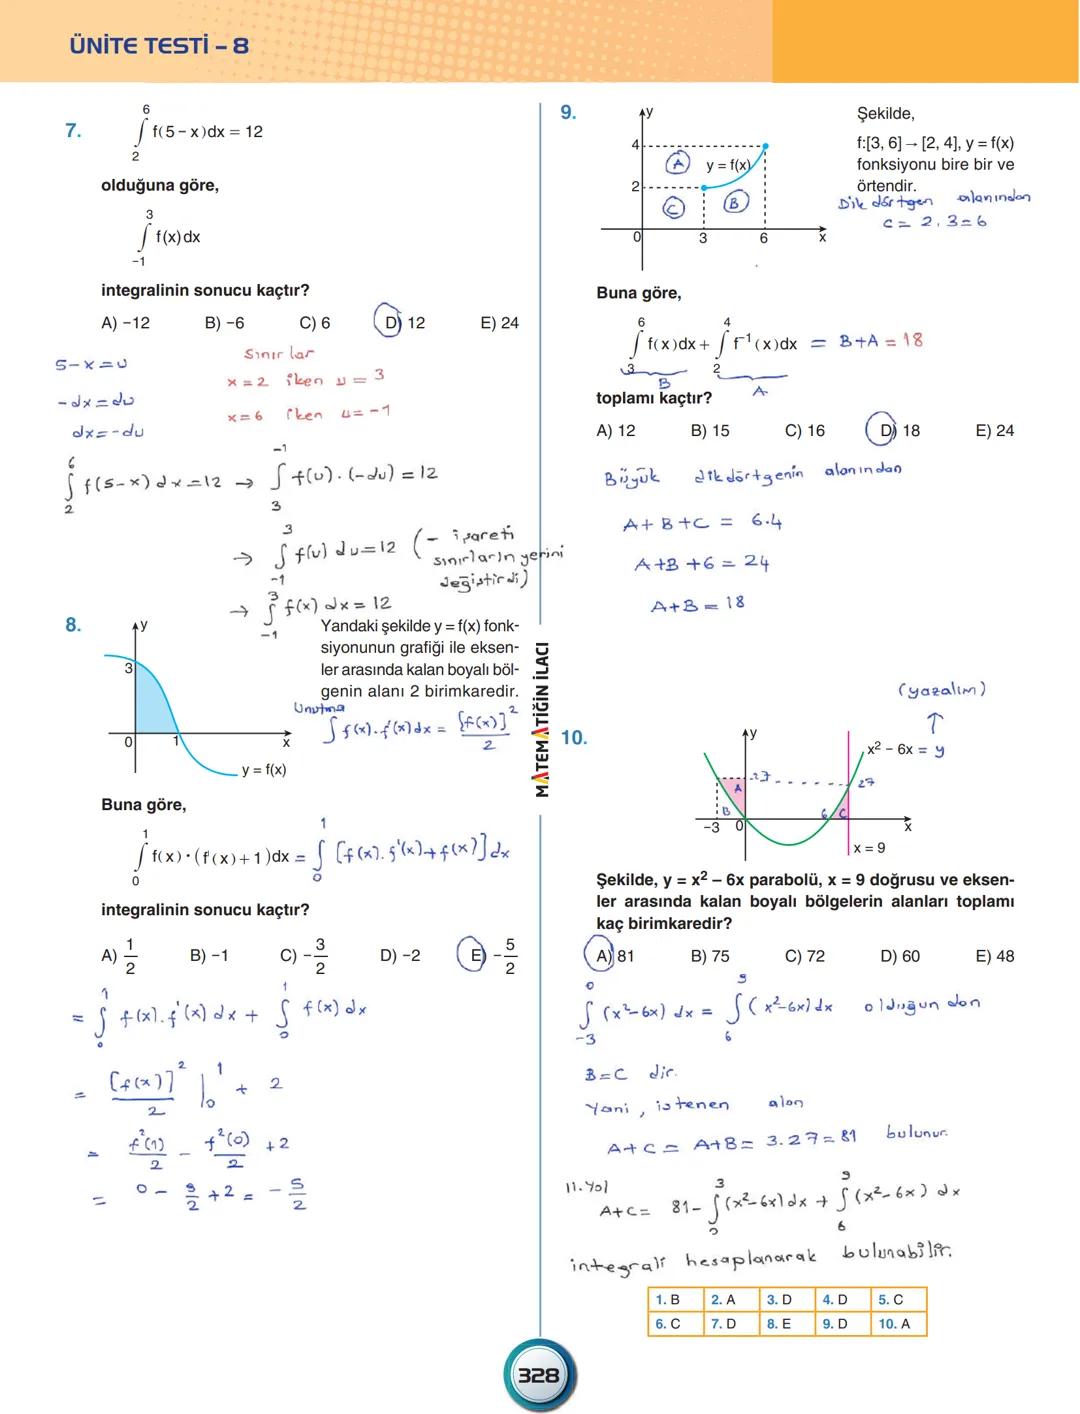 ÜNİTE TESTİ – 8
7.
6
∫ f(5 – x)dx = 12
2
olduğuna göre,
3
∫ f(x) dx
–1
integralinin sonucu kaçtır?
A) –12 B) –6 C) 6 D) 12 E) 24
5-x=u
-dx=du
dx=-du
Sınırlar
x=2 iken u=3
x=6 iken u=-1
6
∫ f(5-x)dx=12 →
2
-1
∫ f(u).(-du)=12
3
3
→ ∫ f(u)du=12 (- işareti
sınırların yerini
değiştirdi)
-1
3
→ ∫ f(x)dx=12
-1
8.
y
3
0 1 x
y = f(x)
Yandaki şekilde y = f(x) fonk-
siyonunun grafiği ile eksen-
ler arasında kalan boyalı böl-
genin alanı 2 birimkaredir.
Unutma
∫ f(x).f'(x)dx = [f(x)]²/2
Buna göre,
1
∫ f(x)·(f'(x)+1)dx = ∫ [f(x).f'(x)+f(x)]dx
0
integralinin sonucu kaçtır?
A) 1/2 B) –1 C) –3/2 D) –2 E) –5/2
= ∫ f(x).f'(x)dx + ∫ f(x)dx
= [f(x)]²/2 |₀¹ + 2
= f²(1)/2 - f²(0)/2 +2
= 0 - 9/2 +2 = -5/2
MATEMATİĞİN İLACI
9.
y
4
A y = f(x)
2
C B
0 3 6 x
Şekilde,
f:[3, 6] → [2, 4], y = f(x)
fonksiyonu bire bir ve
örtendir.
Dik dörtgen alanından
C = 2.3=6
Buna göre,
6 4
∫ f(x)dx + ∫ f⁻¹(x)dx = B+A = 18
3 2
B A
toplamı kaçtır?
A) 12 B) 15 C) 16 D) 18 E) 24
Büyük dikdörtgenin alanından
A+B+C = 6.4
A+B+6 = 24
A+B = 18
10.
(yazalım)
↑
y
x² – 6x = y
27 27
A
B 6 C
–3 0 x
x = 9
Şekilde, y = x² – 6x parabolü, x = 9 doğrusu ve eksen-
ler arasında kalan boyalı bölgelerin alanları toplamı
kaç birimkaredir?
A) 81 B) 75 C) 72 D) 60 E) 48
0 9
∫ (x²-6x)dx = ∫ (x²-6x)dx olduğundan
-3 6
B=C dir.
Yani, istenen alan
A+C = A+B = 3.27=81 bulunur.
11.Yol
3 9
A+C= 81- ∫ (x²-6x)dx + ∫ (x²-6x)dx
6
integrali hesaplanarak bulunabilir.
1. B 2. A 3. D 4. D 5. C
6. C 7. D 8. E 9. D 10. A
328